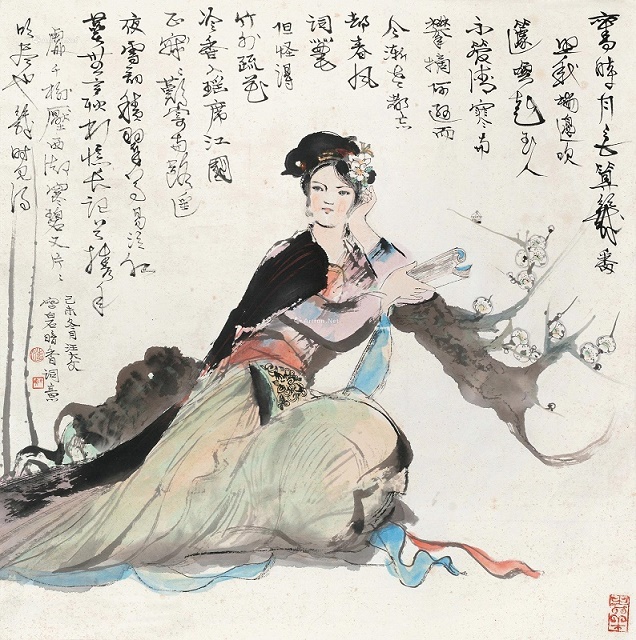 舊時月色算幾番
照我梅邊吹
篴喚起玉人
不管清寒與
攀摘何遜而
今漸老都忘
却春風
詞筆
但怪得
竹外疏花
冷香入瑤席江國
正寂寂歎寄與路遙
夜雪初積翠尊易泣紅
萼無言耿相憶長記曾攜手
處千樹壓西湖寒碧又片片
吹盡也幾時見得
己未冬月汪大文
寫白石暗香詞意